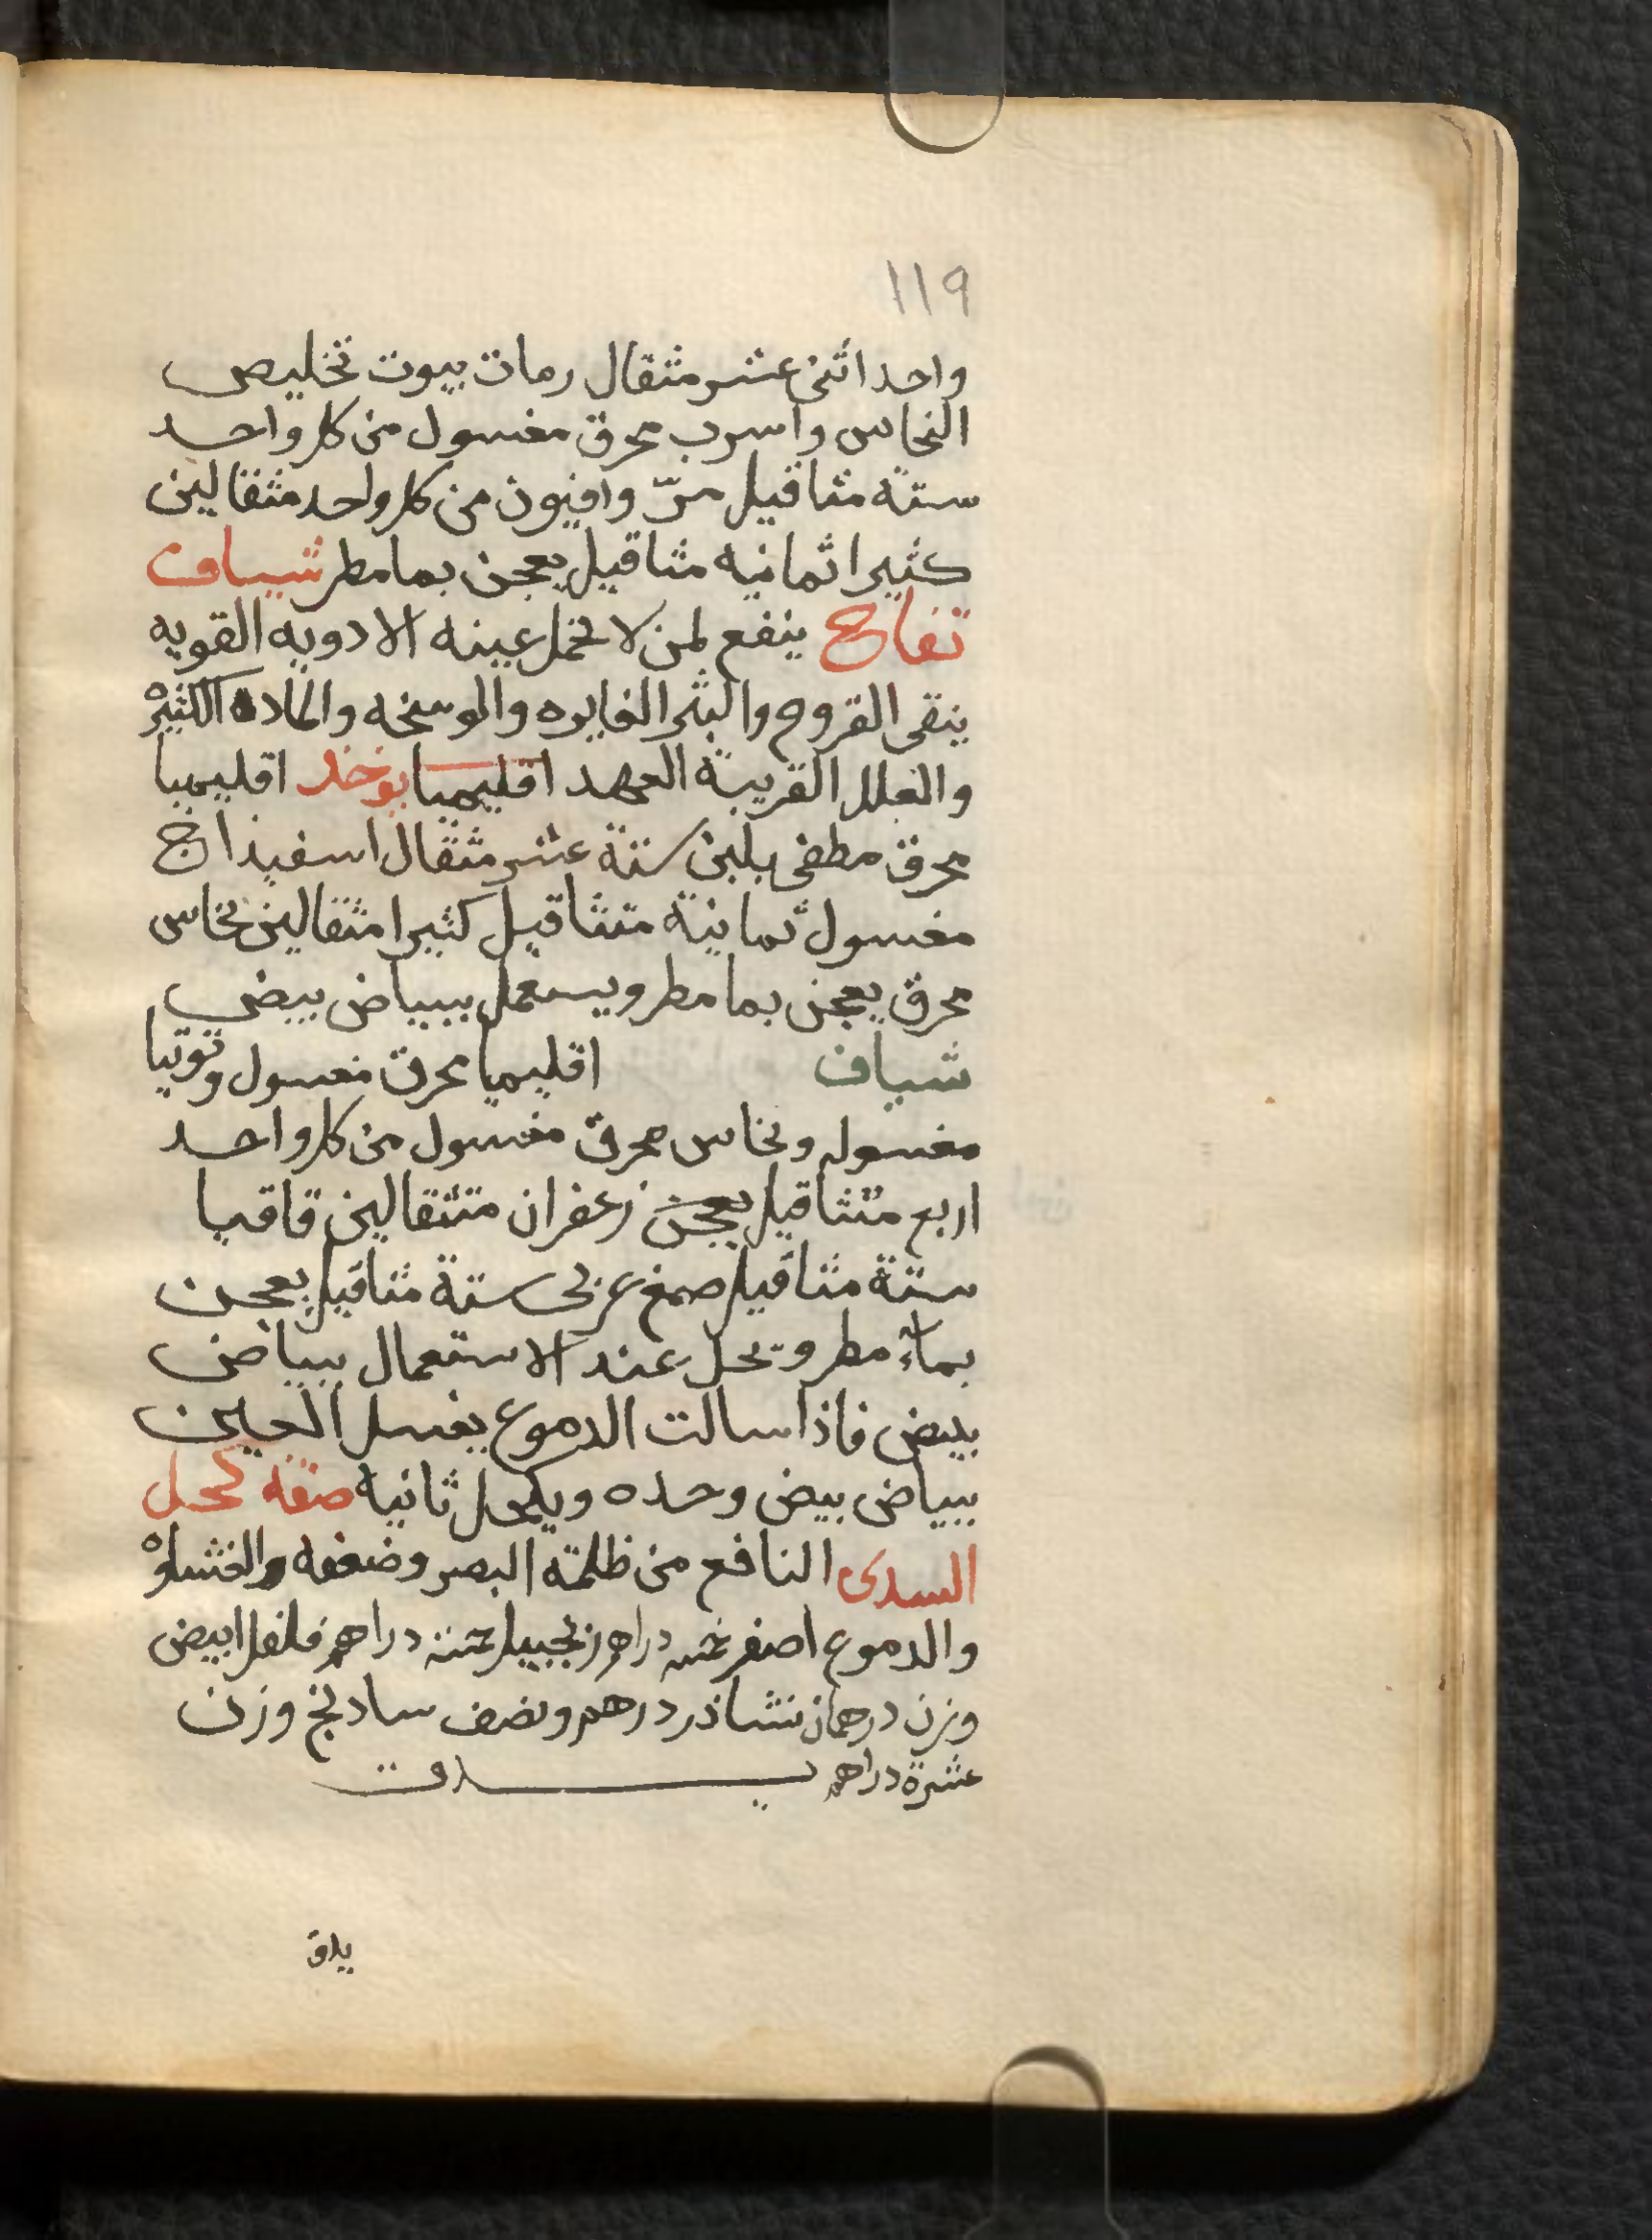 ١١٩
واحد اثنى عشر مثقال رمات بيوت تخليص
النحاس واسرب محرق مغسول من كل واحد
ستة مثاقيل مرّ وافيون من كل واحد مثقالين
كثيرا ثمانيه مثاقيل يعجن بما مطر شياف
تفاح ينفع لمن لا تحمل عينه الادويه القويه
ينقى القروح والبثر الغايره والوسخه والماده الكثيرة
والعلل القريبة العهد اقليميا يوخد اقليميا
محرق مطفى بلبن ستة عشر مثقال اسفيداج
مغسول ثمانية متثاقيل كثيرا مثقالين نحاس
محرق يعجن بما مطر ويستعمل ببياض بيض
شياف اقليميا محرق مغسول وتوتيا
مغسوله ونحاس محرق مغسول من كل واحد
اربع متثاقيل يعجن زعفران متثقالين قاقيا
ستة مثاقيل صمغ عربى ستة مثاقيل يعجن
بماء مطر ويحل عند الاستعمال ببياض
بيض فاذا سالت الدموع يغسل العين
ببياض بيض وحده ويكحل ثانية صفة كحل
السدى النافع من ظلمة البصر وضعفه والغشاوة
والدموع اصفر خمسه دراهم زنجبيل خمسة دراهم فلفل ابيض
وزن درهمان نشاذر درهم ونصف سادنج وزن
عشرة دراهم يدق
يدق